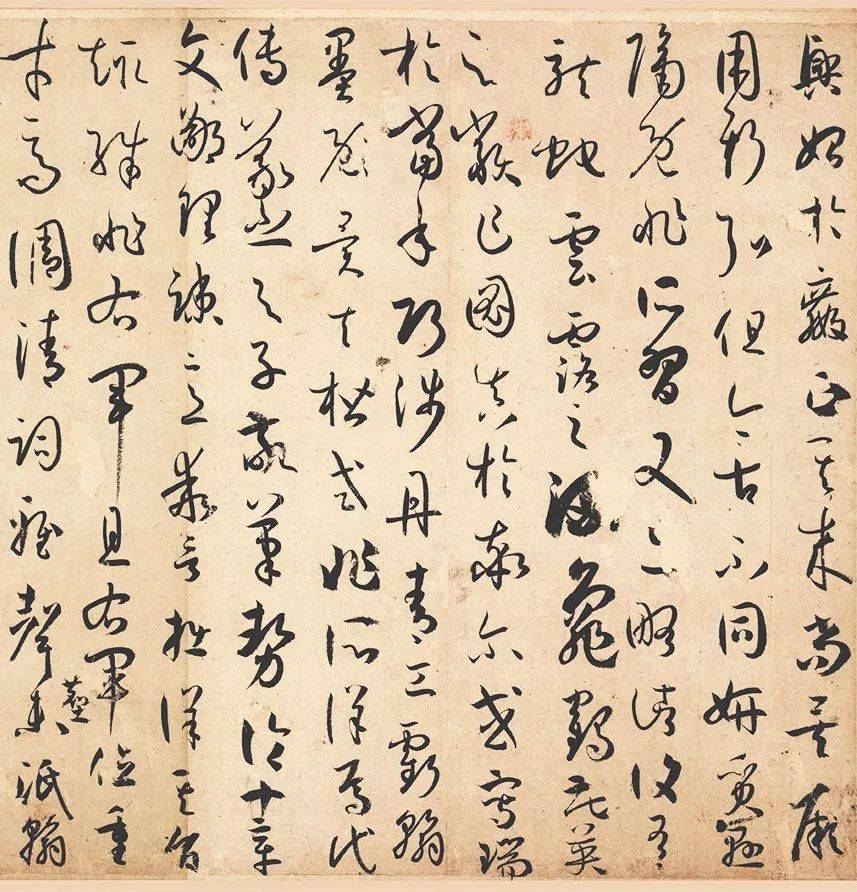 興始於嬴政其来尚矣厥
用斯弘但今古不同妍質懸
隔既非所習又亦略諸復有
龍蛇雲露之流龜鶴花英
之類乍圖真於率尔或寫瑞
於當年巧涉丹青工虧翰
墨既異夫楷式非所詳焉代
傳羲之与子敬筆勢論十章
文鄙理疎意乖言拙詳其旨
趣殊非右軍且右軍位重
才高調清詞雅聲塵未泯翰